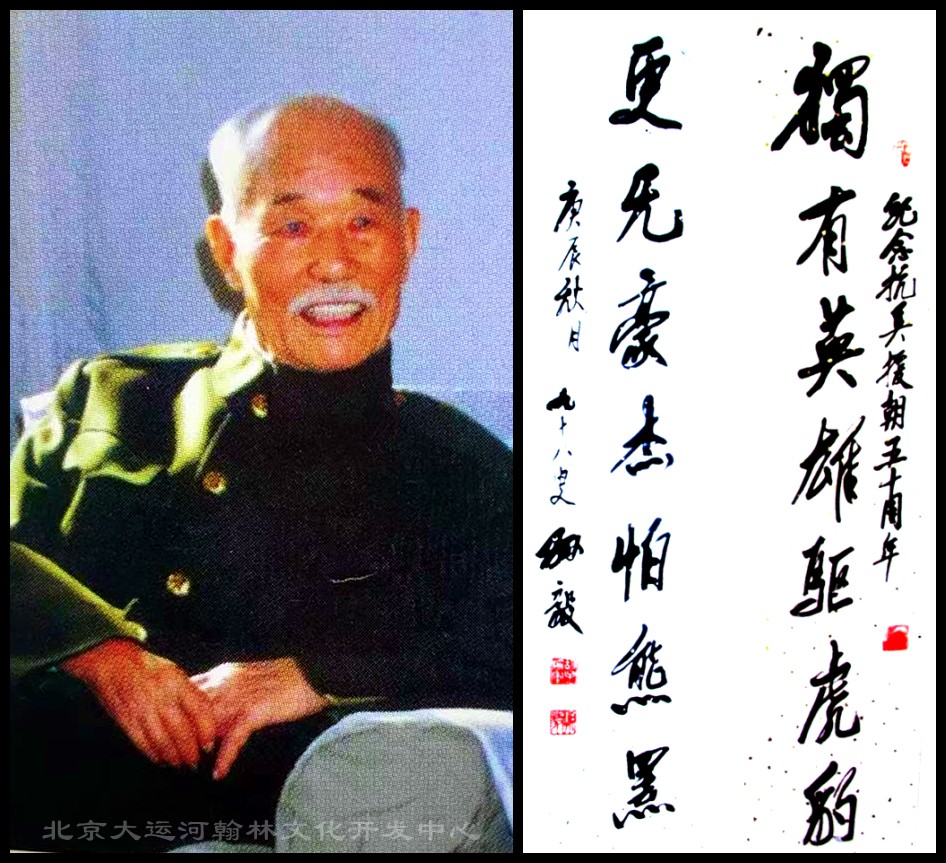 纪念抗美援朝五十周年
獨有英雄驱虎豹
更无豪杰怕熊羆
庚辰秋月 九十八叟 孙毅
北京大运河翰林文化开发中心